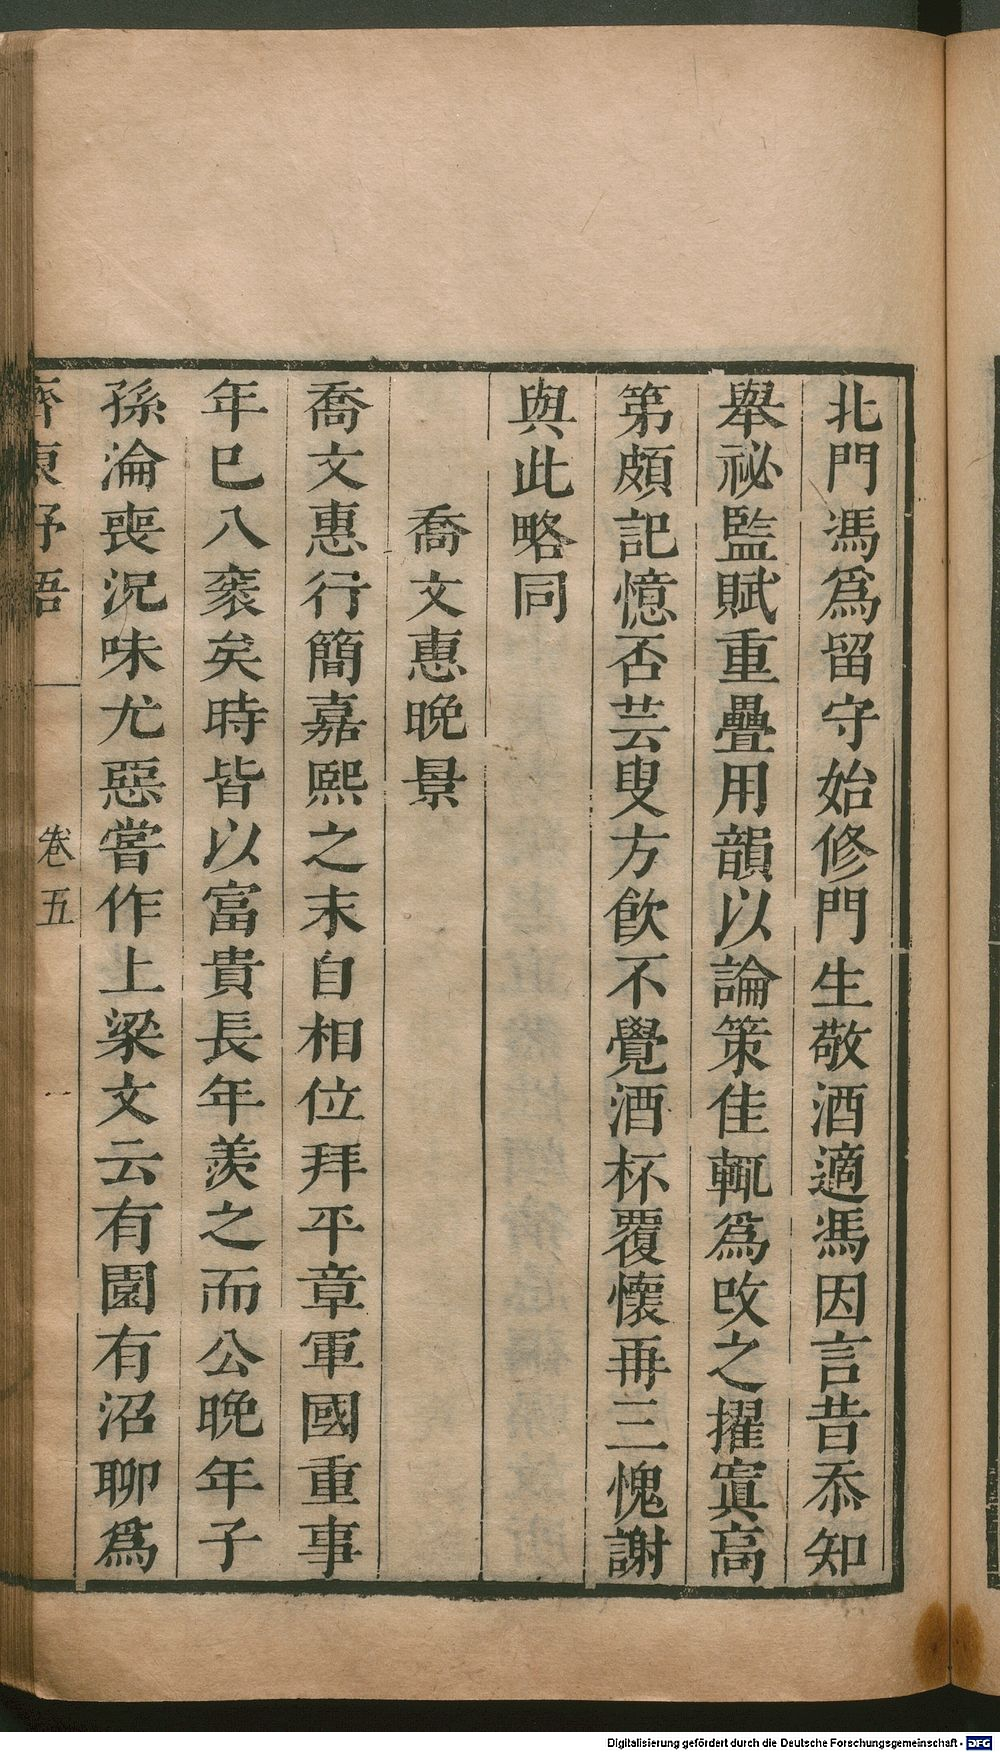 北門馮爲留守始修門生敬酒適馮因言昔忝知
舉祕監賦重疊用韻以論策佳輒爲改之擢寘高
第頗記憶否芸叟方飲不覺酒杯覆懷再三愧謝
與此略同
喬文惠晚景
喬文惠行簡嘉熙之末自相位拜平章軍國重事
年巳八袠矣時皆以富貴長年羨之而公晚年子
孫淪喪況味尤惡嘗作上梁文云有園有沼聊爲
齊東野語
卷五
Digitalisierung gefördert durch die Deutsche Forschungsgemeinschaft - DFG